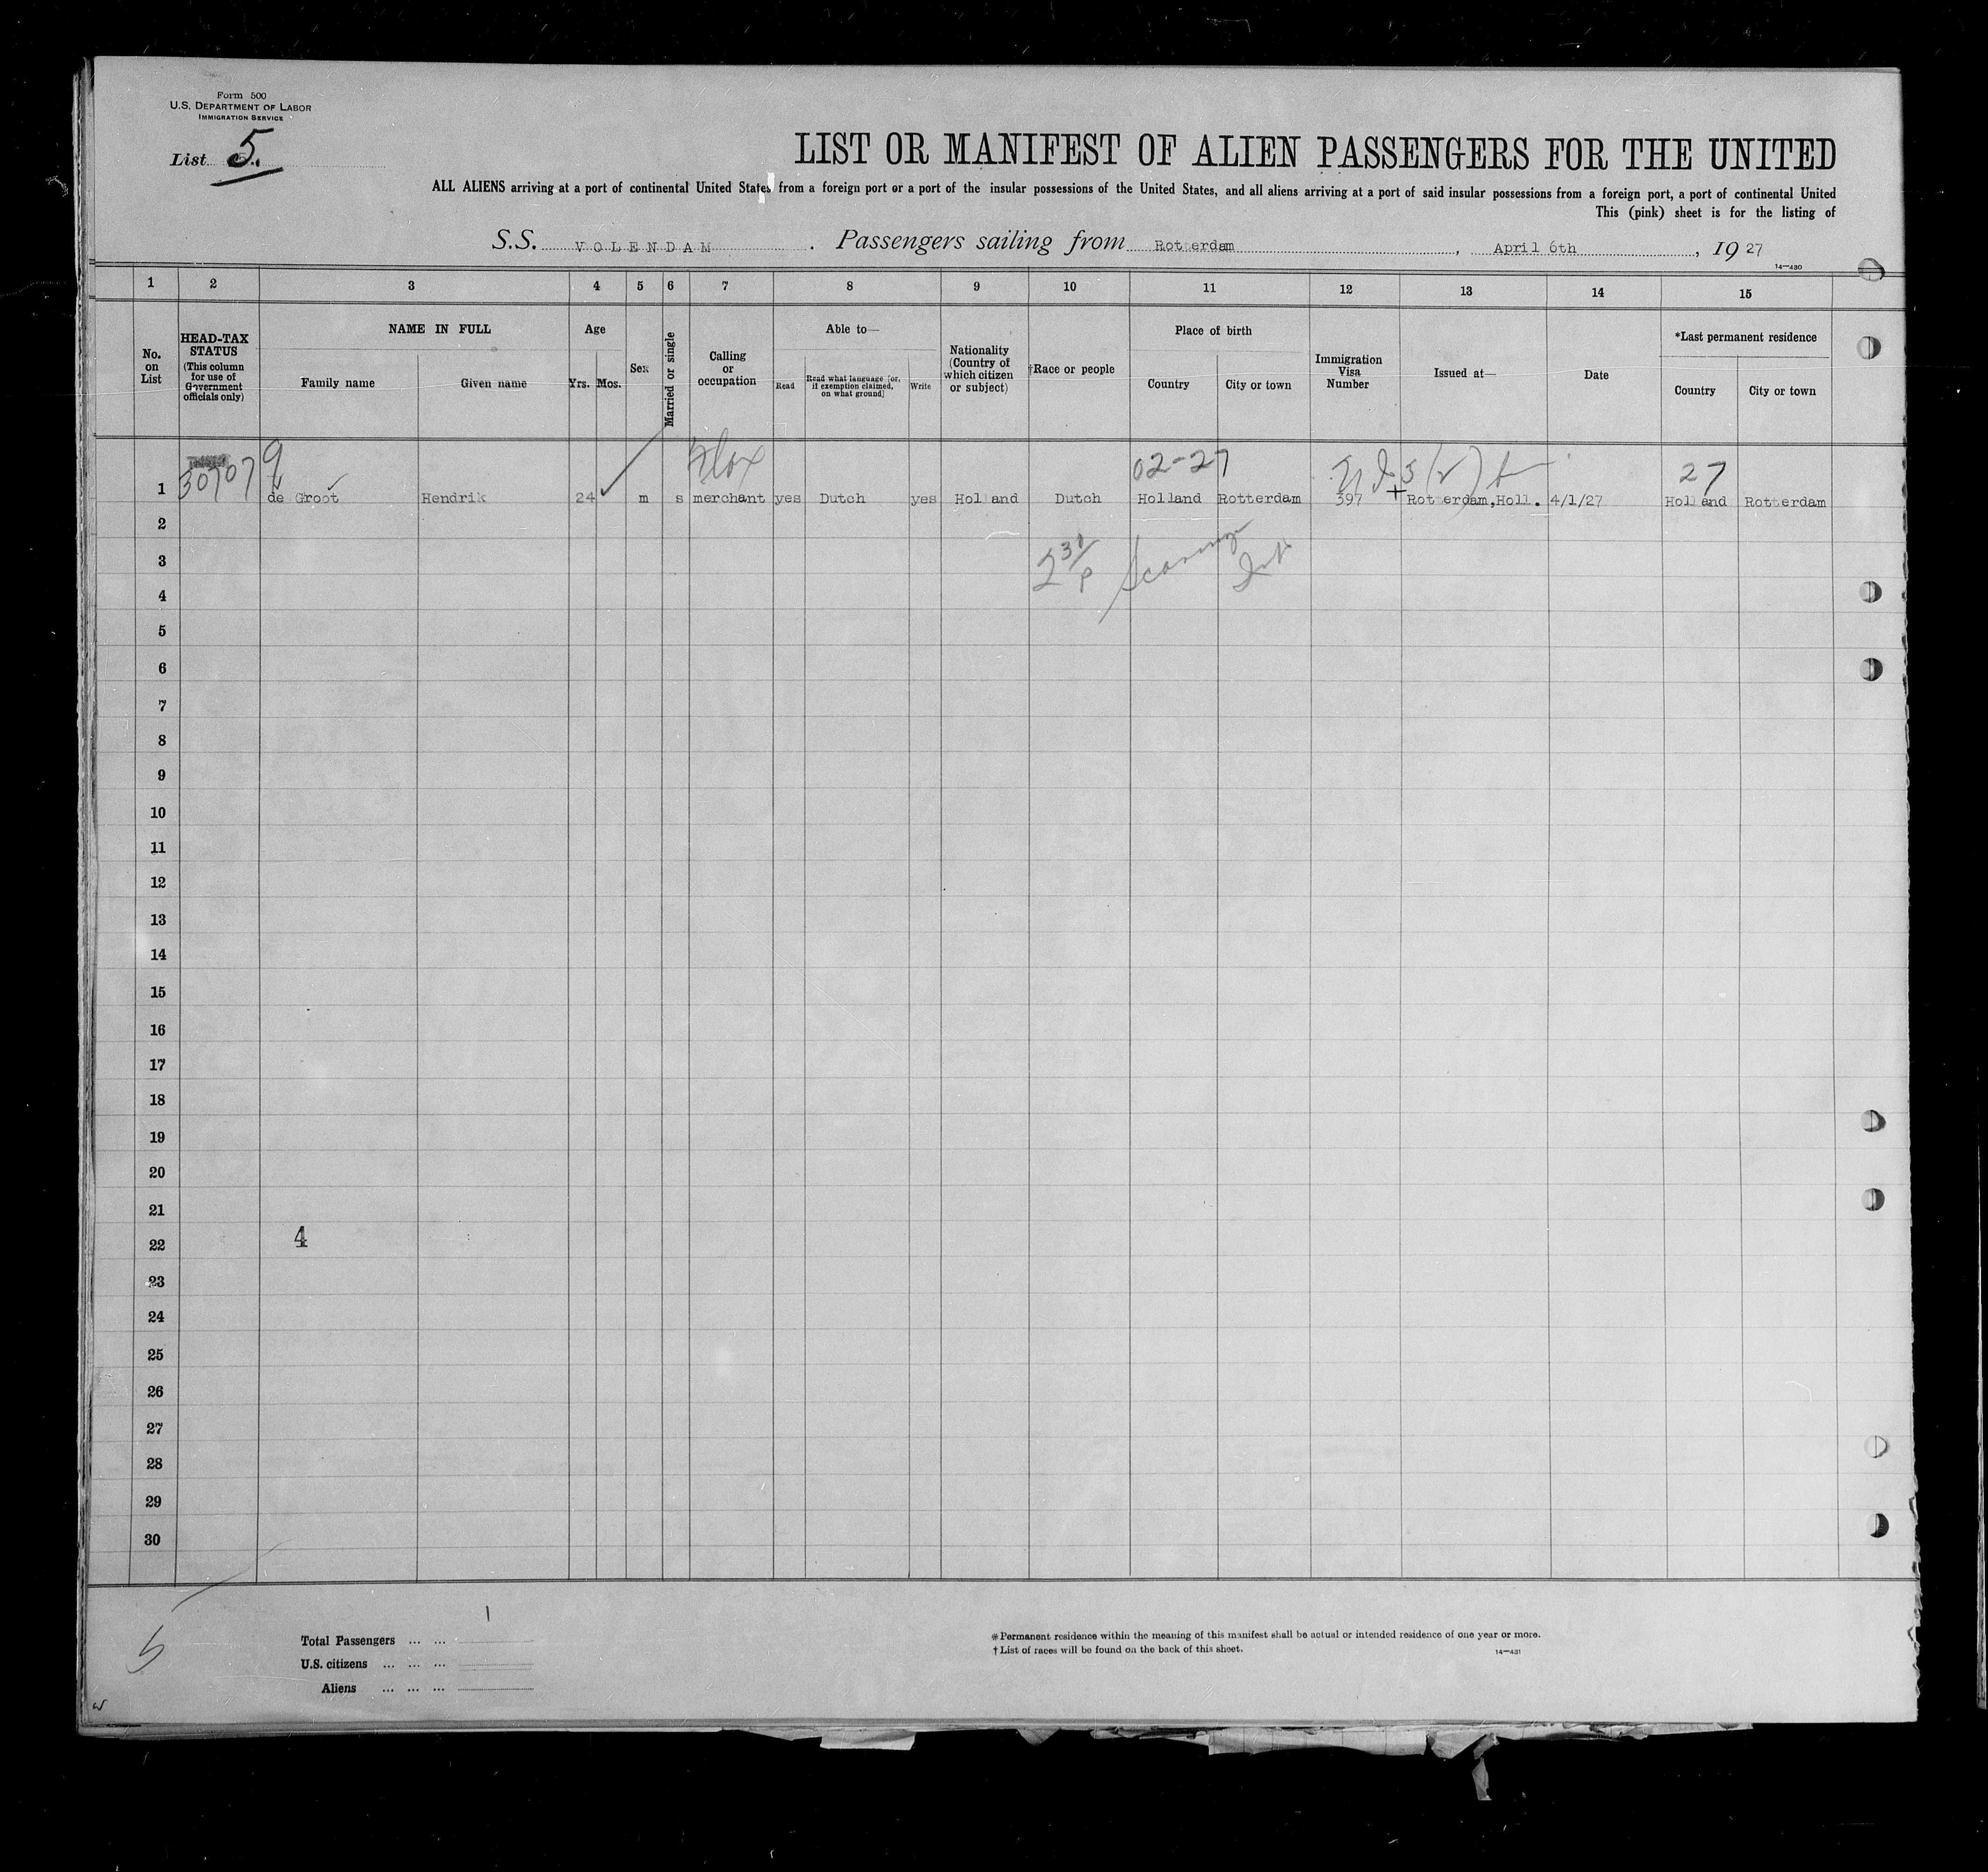 Form 500
U.S. DEPARTMENT OF LABOR
IMMIGRATION SERVICE
List 5.
LIST OR MANIFEST OF ALIEN PASSENGERS FOR THE UNITED
ALL ALIENS arriving at a port of continental United States from a foreign port or a port of the insular possessions of the United States, and all aliens arriving at a port of said insular possessions from a foreign port, a port of continental United
This (pink) sheet is for the listing of
S.S. VOLENDAM . Passengers sailing from Rotterdam , April 6th , 1927
14—430
1 2 3 4 5 6 7 8 9 10 11 12 13 14 15
No. on List
HEAD-TAX STATUS (This column for use of Government officials only)
NAME IN FULL
Family name
Given name
Age
Yrs. Mos.
Sex
Married or single
Calling or occupation
Able to—
Read
Read what language [or, if exemption claimed, on what ground]
Write
Nationality (Country of which citizen or subject)
†Race or people
Place of birth
Country
City or town
Immigration Visa Number
Issued at—
Date
*Last permanent residence
Country
City or town
02-27
27
1 30707 de Groot Hendrik 24 m s merchant yes Dutch yes Holland Dutch Holland Rotterdam 397 Rotterdam,Holl. 4/1/27 Holland Rotterdam
2
3
4
5
6
7
8
9
10
11
12
13
14
15
16
17
18
19
20
21
4
22
23
24
25
26
27
28
29
30
1
Total Passengers ... ...
U.S. citizens ... ... ...
Aliens ... ... ...
5
*Permanent residence within the meaning of this manifest shall be actual or intended residence of one year or more.
†List of races will be found on the back of this sheet.
14—431